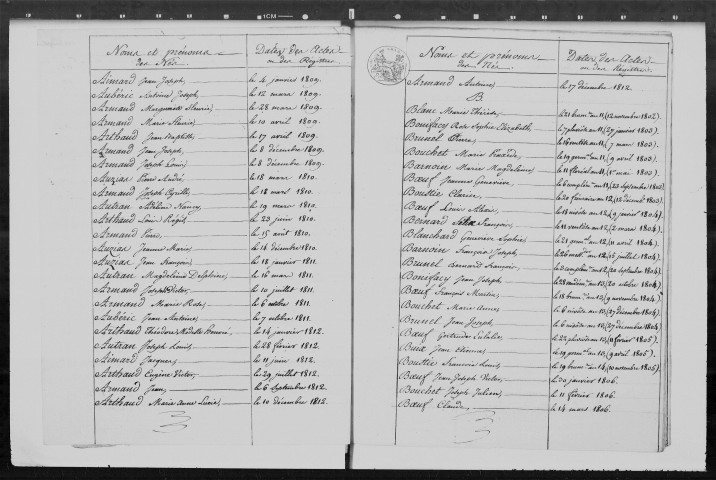 Noms et prénoms Dates des Actes
des Nés. ou des Registres.
Aimard Jean Joseph, le 4 janvier 1809.
Aubéric Antoine Joseph, le 12 mars 1809.
Armand Marguerite le 28 mars 1809.
Armand Marie le 10 avril 1809.
Arthaud Jean Baptiste, le 17 avril 1809.
Armand Jean Joseph, le 8 décembre 1809.
Armand Joseph Louis, le 8 décembre 1809.
Auzias Pierre André, le 18 mars 1810.
Armand Joseph Cyrille, le 18 mars 1810.
Autran Adéline Nancy, le 19 mars 1810.
Arthaud Louis Régis, le 23 juin 1810.
Armand Pierre, le 15 août 1810.
Auzias Jeanne Marie, le 14 décembre 1810.
Auzias Jean François, le 18 janvier 1811.
Autran Magdeleine Delphine, le 16 mars 1811.
Armand Joseph Victor, le 10 juillet 1811.
Armand Marie Rose, le 6 octobre 1811.
Aubéric Jean Antoine, le 7 octobre 1811.
Arthaud Théodore Honoré, le 14 janvier 1812.
Autran Joseph Louis, le 28 février 1812.
Aimard Jacques, le 11 juin 1812.
Arthaud Eugène Victor, le 29 juillet 1812.
Armand Jean, le 5 Septembre 1812.
Arthaud Marie Anne Lucie, le 10 décembre 1812.
Noms et prénoms Dates des Actes
des Nés. ou des Registres.
Armand Antoine le 17 décembre 1812.
B
Blanc Marie Thérèse, le 21 brum. an 11, (12 novembre 1802).
Bonifacy Rose Sophie Elizabeth, le 7 pluviôse an 11, (27 janvier 1803).
Brunel Pierre, le 16 ventôse an 11, (7 mars 1803).
Bouchet Marie le 19 germ. an 11, (9 avril 1803).
Barnoin Marie Magdeleine, le 11 floréal an 11, (1er mai 1803).
Bœuf Jeanne Geneviève, le 6 complém. an 11, (23 septembre 1803).
Boustie Claire, le 20 frimaire an 12, (12 décemb. 1803).
Bœuf Louis Alexis, le 18 nivôse an 12, (9 janvier 1804).
Bernard François, le 11 ventôse an 12, (2 mars 1804).
Blanchard Geneviève Sophie, le 21 germ. an 12, (11 avril 1804).
Barnoin François Joseph, le 26 mess. an 12, (15 juillet 1804).
Brunel Bernard François, le 3 complém. an 12, (20 septembre 1804).
Bonifacy Jean Joseph, le 28 vendém. an 13, (20 octobre 1804).
Bœuf François Martin, le 18 brum. an 13, (9 novembre 1804).
Bouchet Marie Anne, le 6 nivôse an 13, (27 décembre 1804).
Brunel Jean Joseph, le 6 nivôse an 13, (27 décembre 1804).
Bœuf Gertrude Eulalie, le 22 pluviôse an 13, (11 février 1805).
Jean Etienne, le 19 germ. an 13, (9 avril 1805).
Boustie François Louis, le 19 brum. an 14, (10 novembre 1805).
Bœuf Jean Joseph Victor, le 20 janvier 1806.
Bouchet Joseph Julien, le 11 février 1806.
Bœuf Claude, le 14 mars 1806.